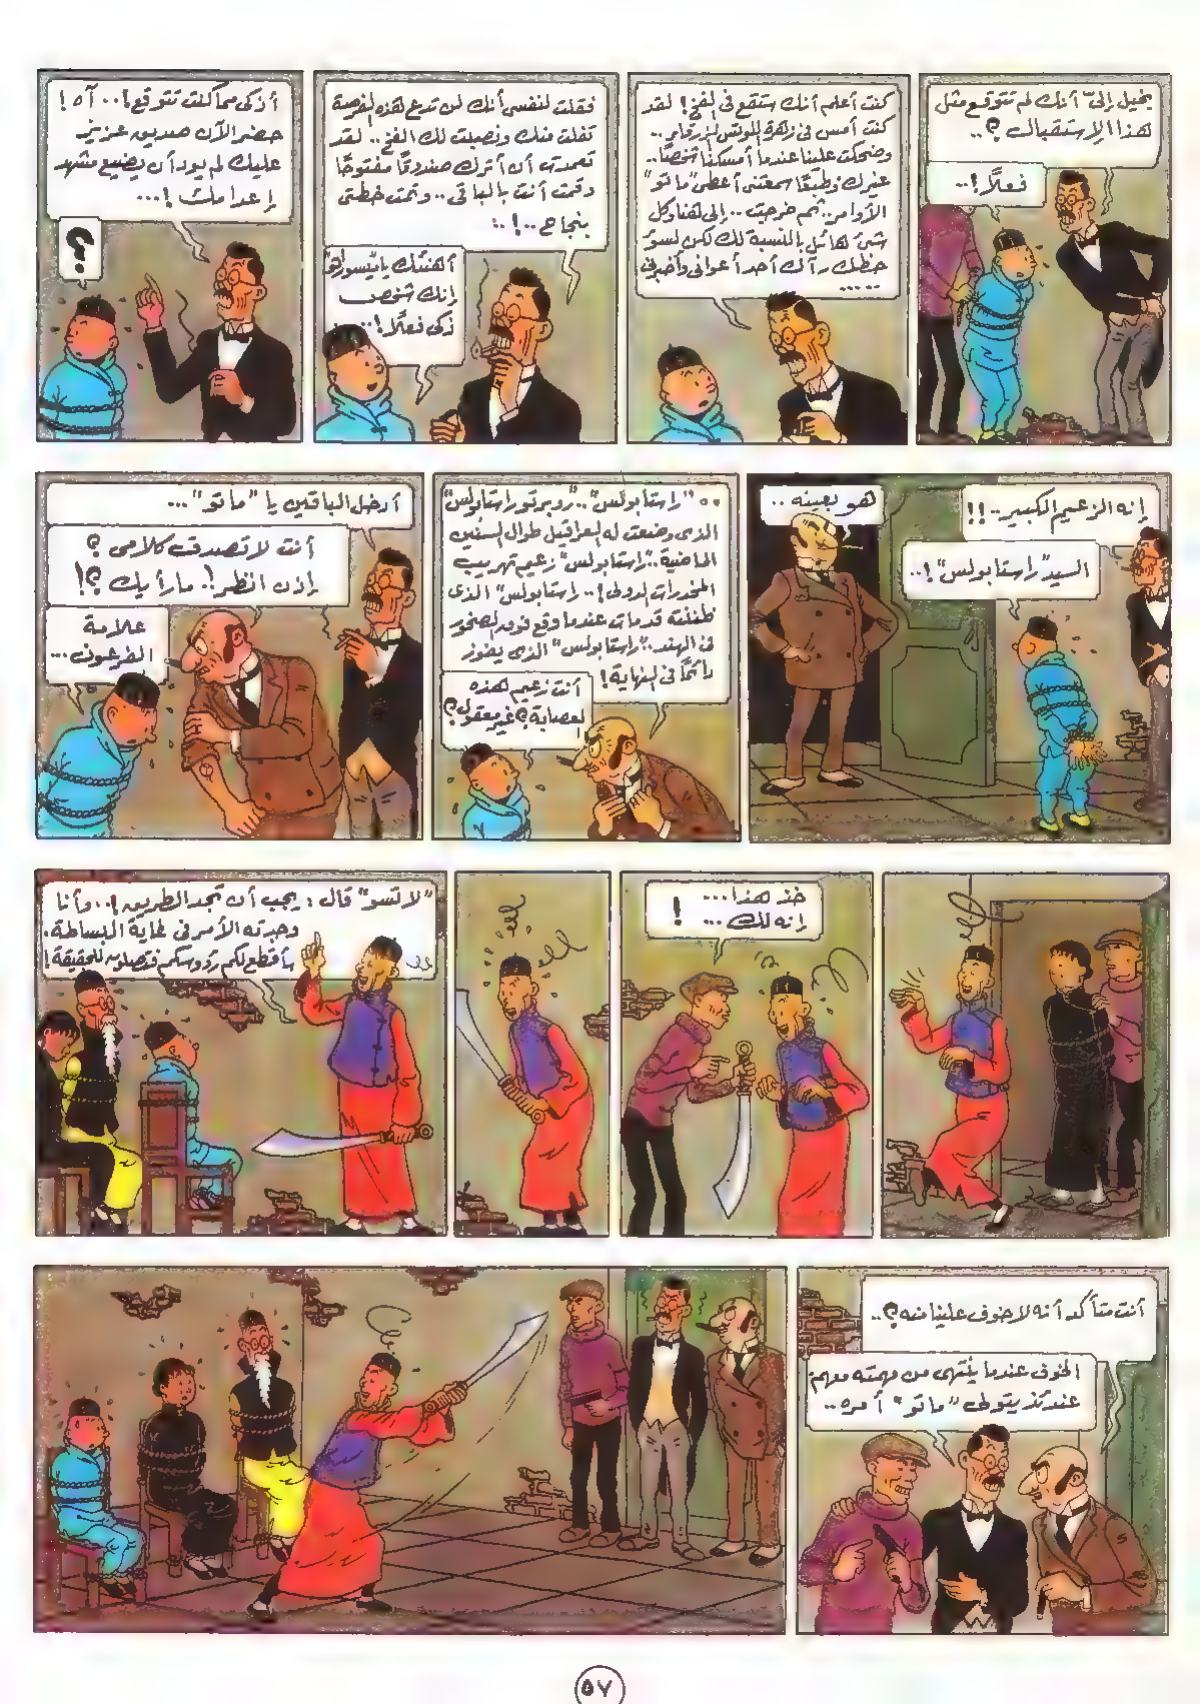 يخيل إلىّ أنك لم تتوقع مثل
هذا الإستقبال ؟..
فعلًا !..
كنت أعلم أنك ستقع فى الفخ ! لقد
كنت أمس فى زهرة اللوتس الزرقاء ...
وضحكت علينا عندما أمسكنا شخصًا ..
غيرك وطبعًا سمعتنى أعطى "ماتو"
الأوامر .. ثم خرجت .. إلى هنا وكل
شئ هائل بالنسبة لك لكن لسوء
حظك رآك أحد أعوانى وأخبرنى
.....
فقلت لنفسى أنك لن تدع هذه الفرصة
تفلت منك ونصبت لك الفخ .. لقد
تعمدت أن أترك صندوقًا مفتوحًا
وقمت أنت بالباقى .. وتمت خطتى
بنجاح .. ! ..
أهنئك يا
إنك شخص
ذكى فعلًا ! ..
أذكى مما كنت تتوقع ! .. آه !
حضر الآن صديق عزيز
عليك لم يود أن يضيع مشهد
إعدامك ! ...
؟
إنه الزعيم الكبير .. !!
السيد "راستابولس" ! ..
هو بعينه ..
"راستابولس" .. "روبرتو راستابولس"
الذى وضعت له العراقيل طوال السنين
الماضية .. "راستابولس" زعيم تهريب
المخدرات الدولى ! .. راستابولس" الذى
ظننته قد مات عندما وقع فوقه الصخور
فى الهند .. "راستابولس" الذى يفوز
دائمًا فى النهاية !
أنت زعيم هذه
العصابة ؟ غير معقول ؟
أدخل الباقين يا "ماتو" ...
أنت لا تصدق كلامى ؟
إذن انظر ! . ما رأيك ؟!
علامة
الفرعون ...
خذ هذا ...
إنه لك ... !
"لاتسو" قال : يجب أن تجد الطريق ! .. وأنا
وجدته الأمر فى غاية البساطة .
سأقطع لكم رءوسكم فتصلون للحقيقة !
أنت متأكد أنه لا خوف علينا منه ؟ ..
الخوف عندما ينتهى من مهمته معهم
عندئذ يتولى "ماتو" أمره ..
٥٧